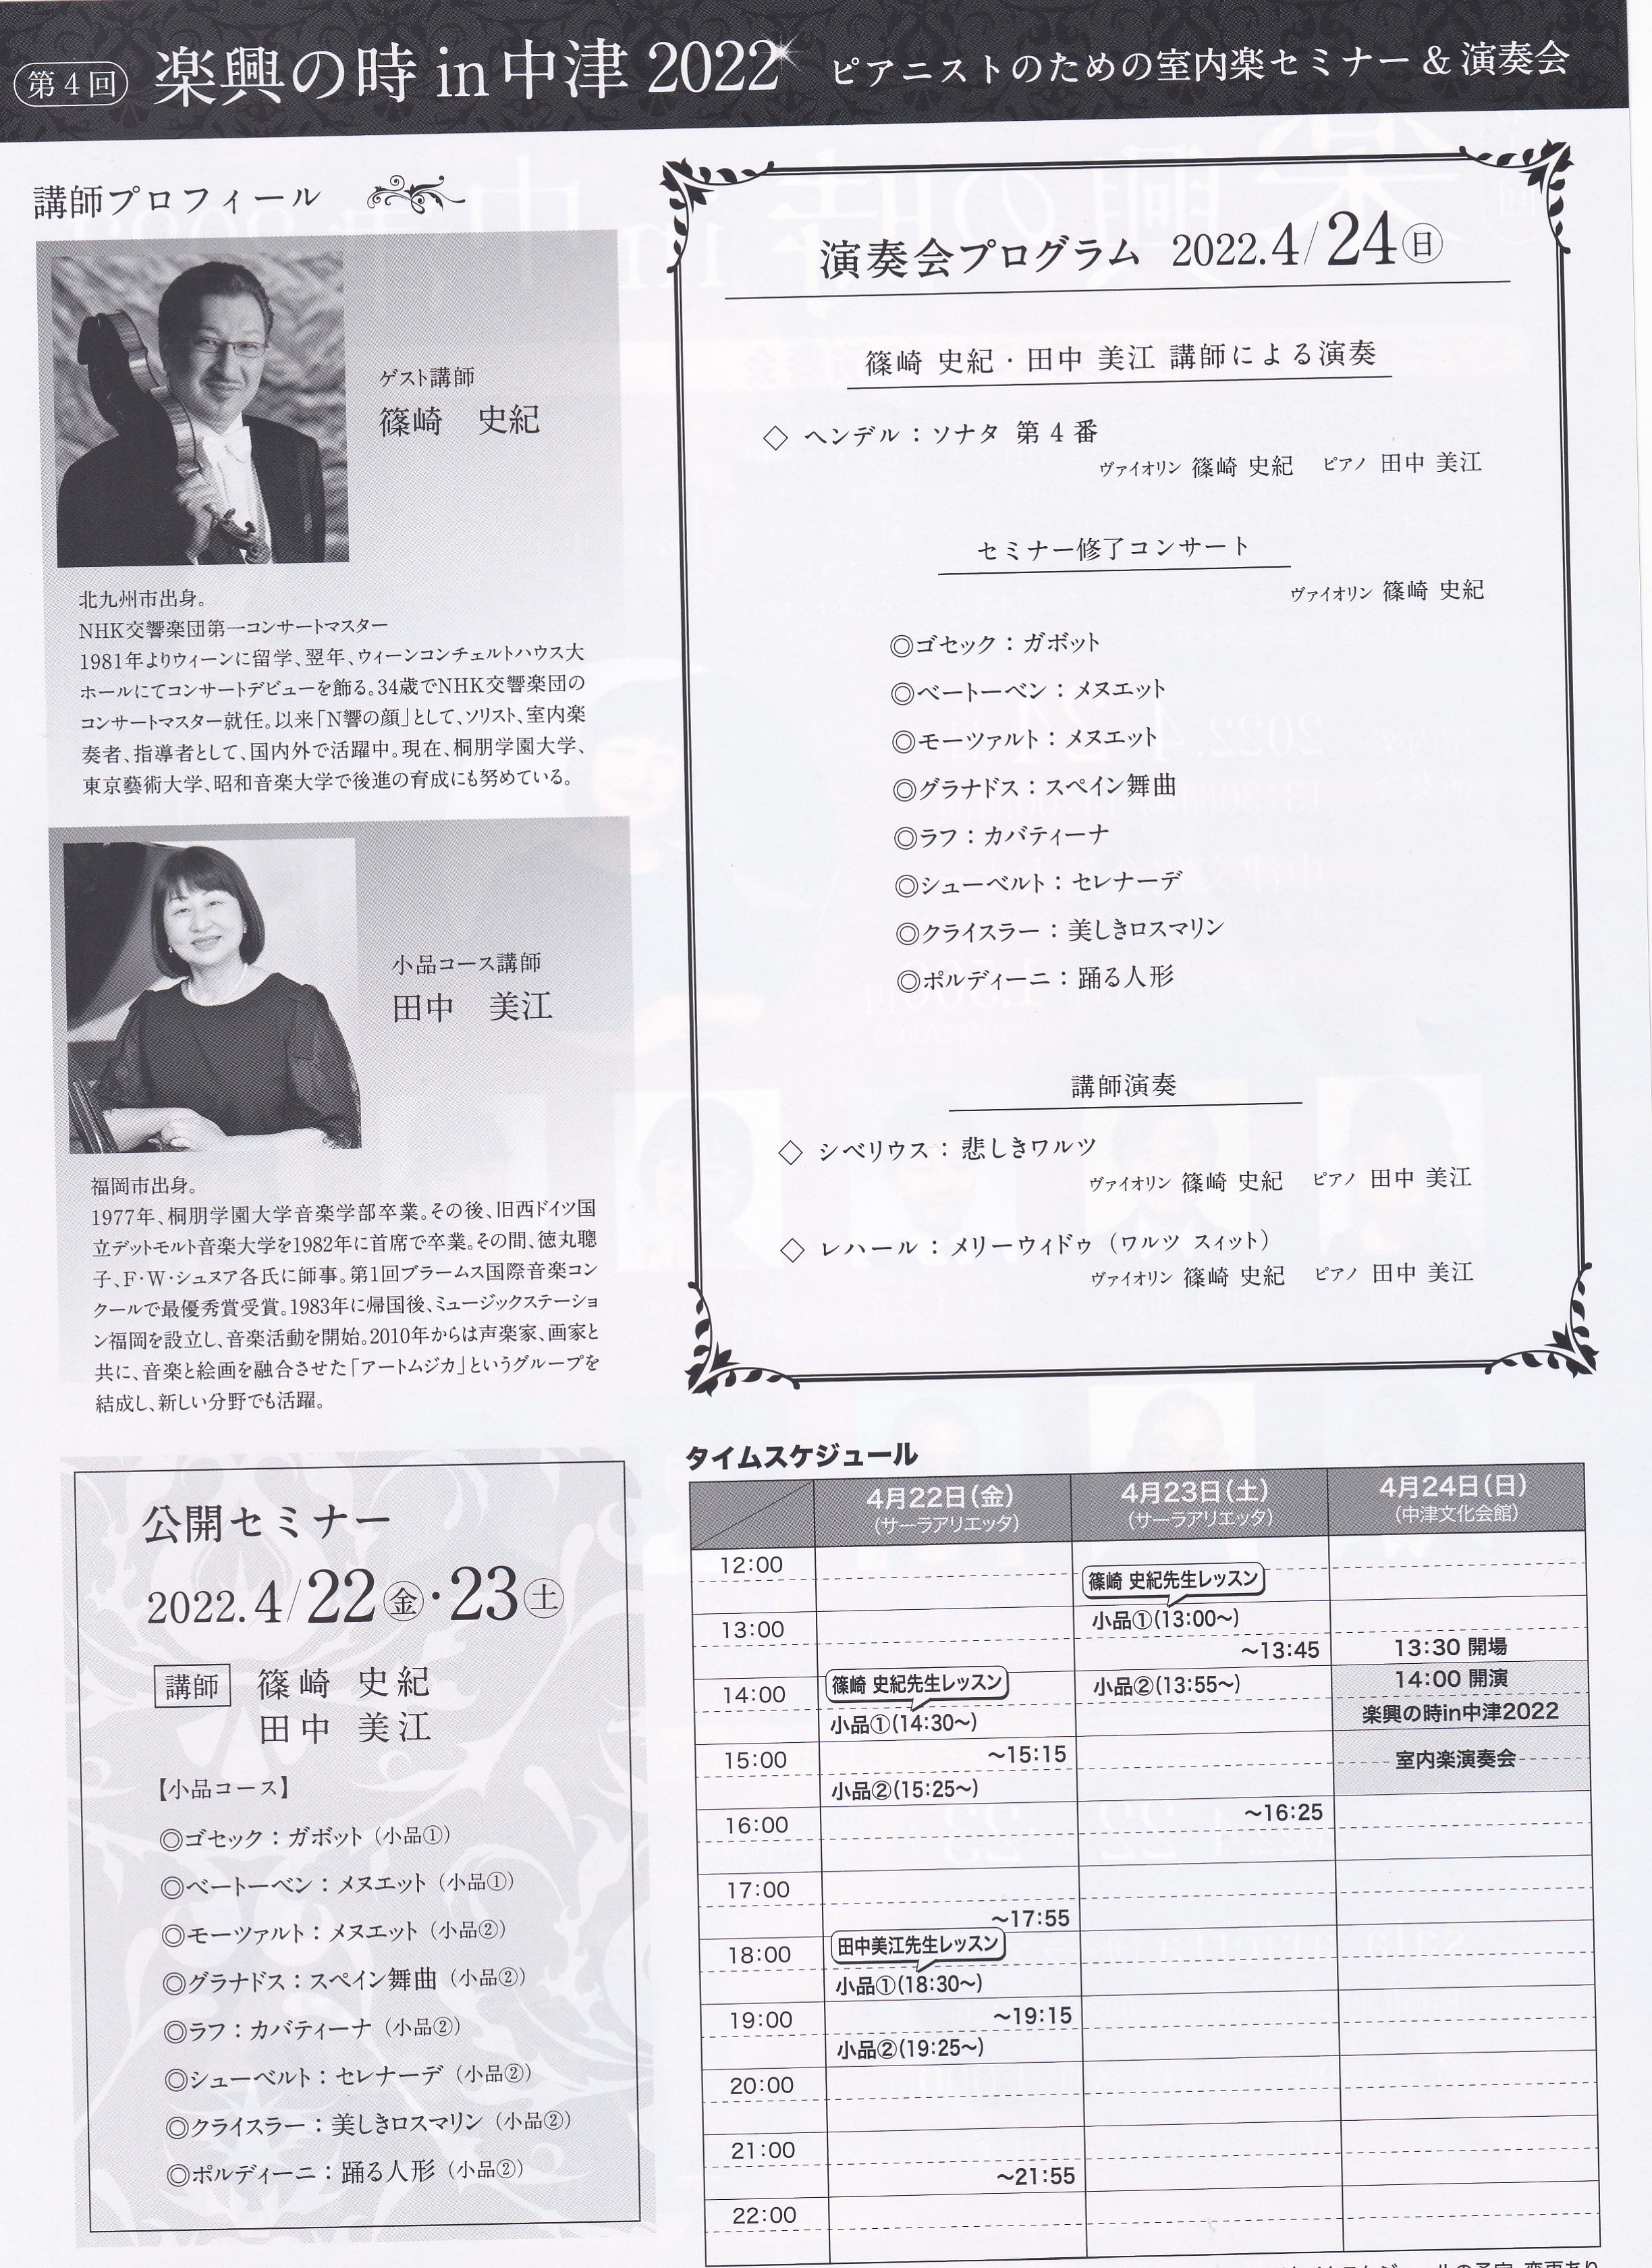 第4回 楽興の時 in 中津 2022 ピアニストのための室内楽セミナー & 演奏会
講師プロフィール
ゲスト講師
篠崎 史紀
北九州市出身。
NHK交響楽団第一コンサートマスター
1981年よりウィーンに留学、翌年、ウィーンコンチェルトハウス大
ホールにてコンサートデビューを飾る。34歳でNHK交響楽団の
コンサートマスター就任。以来「N響の顔」として、ソリスト、室内楽
奏者、指導者として、国内外で活躍中。現在、桐朋学園大学、
東京藝術大学、昭和音楽大学で後進の育成にも努めている。
小品コース講師
田中 美江
福岡市出身。
1977年、桐朋学園大学音楽学部卒業。その後、旧西ドイツ国
立デットモルト音楽大学を1982年に首席で卒業。その間、徳丸聰
子、F・W・シュヌア各氏に師事。第1回ブラームス国際音楽コン
クールで最優秀賞受賞。1983年に帰国後、ミュージックステーショ
ン福岡を設立し、音楽活動を開始。2010年からは声楽家、画家と
共に、音楽と絵画を融合させた「アートムジカ」というグループを
結成し、新しい分野でも活躍。
公開セミナー
2022.4/22㊎・23㊏
講師 篠崎 史紀
田中 美江
【小品コース】
◎ゴセック：ガボット（小品①）
◎ベートーベン：メヌエット（小品①）
◎モーツァルト：メヌエット（小品②）
◎グラナドス：スペイン舞曲（小品②）
◎ラフ：カバティーナ（小品②）
◎シューベルト：セレナーデ（小品②）
◎クライスラー：美しきロスマリン（小品②）
◎ポルディーニ：踊る人形（小品②）
演奏会プログラム 2022.4/24㊐
篠崎 史紀・田中 美江 講師による演奏
◇ ヘンデル：ソナタ 第4番
ヴァイオリン 篠崎 史紀 ピアノ 田中 美江
セミナー修了コンサート
ヴァイオリン 篠崎 史紀
◎ゴセック：ガボット
◎ベートーベン：メヌエット
◎モーツァルト：メヌエット
◎グラナドス：スペイン舞曲
◎ラフ：カバティーナ
◎シューベルト：セレナーデ
◎クライスラー：美しきロスマリン
◎ポルディーニ：踊る人形
講師演奏
◇ シベリウス：悲しきワルツ
ヴァイオリン 篠崎 史紀 ピアノ 田中 美江
◇ レハール：メリーウィドゥ（ワルツ スィット）
ヴァイオリン 篠崎 史紀 ピアノ 田中 美江
タイムスケジュール
4月22日（金） 4月23日（土） 4月24日（日）
（サーラアリエッタ） （サーラアリエッタ） （中津文化会館）
12:00
篠崎 史紀先生レッスン
13:00 小品①(13:00〜)
〜13:45 13:30 開場
14:00 篠崎 史紀先生レッスン 小品②(13:55〜) 14:00 開演
小品①(14:30〜) 楽興の時in中津2022
15:00 〜15:15 室内楽演奏会
小品②(15:25〜)
16:00 〜16:25
17:00
〜17:55
18:00 田中美江先生レッスン
小品①(18:30〜)
19:00 〜19:15
小品②(19:25〜)
20:00
21:00
〜21:55
22:00